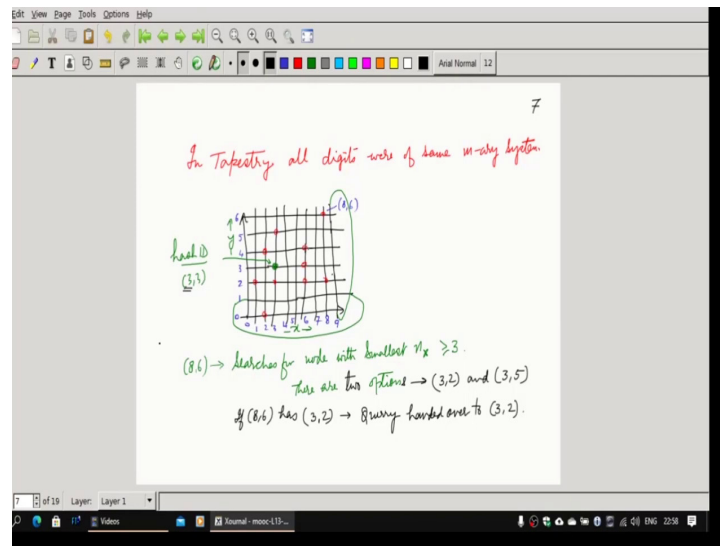 Edit View Page Tools Options Help
T
Arial Normal 12
7
In Tapestry, all digits were of same m-ary system.
(8,6)
6
5
4
3
2
1
0
y
hash ID
(3,3)
0 1 2 3 4 5 6 7 8 9
x
(8,6) → Searches for node with smallest nx ≥ 3.
There are two options → (3,2) and (3,5)
If (8,6) has (3,2) → Querry handed over to (3,2).
7 of 19 Layer: Layer 1
Videos
Xournal - mooc-L13-...
ENG 22:58